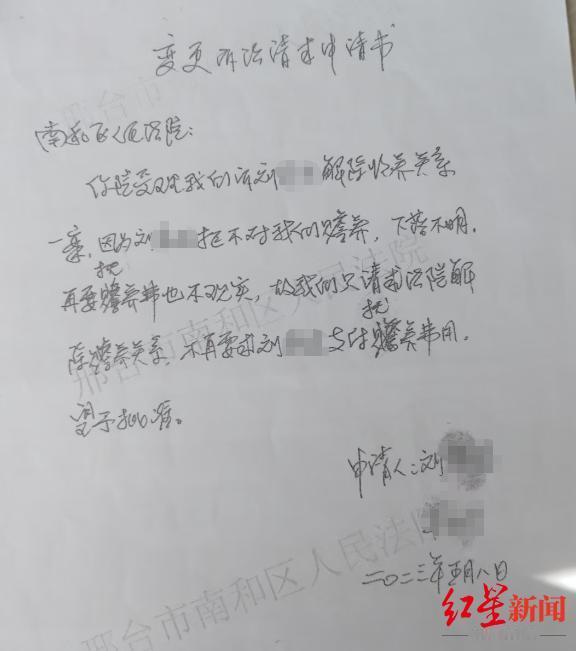 变更诉讼请求申请书
南和区人民法院：
你院受理我们诉刘 解除收养关系
一案，因为刘 拒不对我们赡养，下落不明，
再要抚养费也不现实，故我们只请求法院解
除赡养关系，不再要求刘 支付抚养费用。
望予批准。
申请人：刘
二〇二三年五月八日
邢台市南和区人民法院
邢台市南和区人民法院
红星新闻